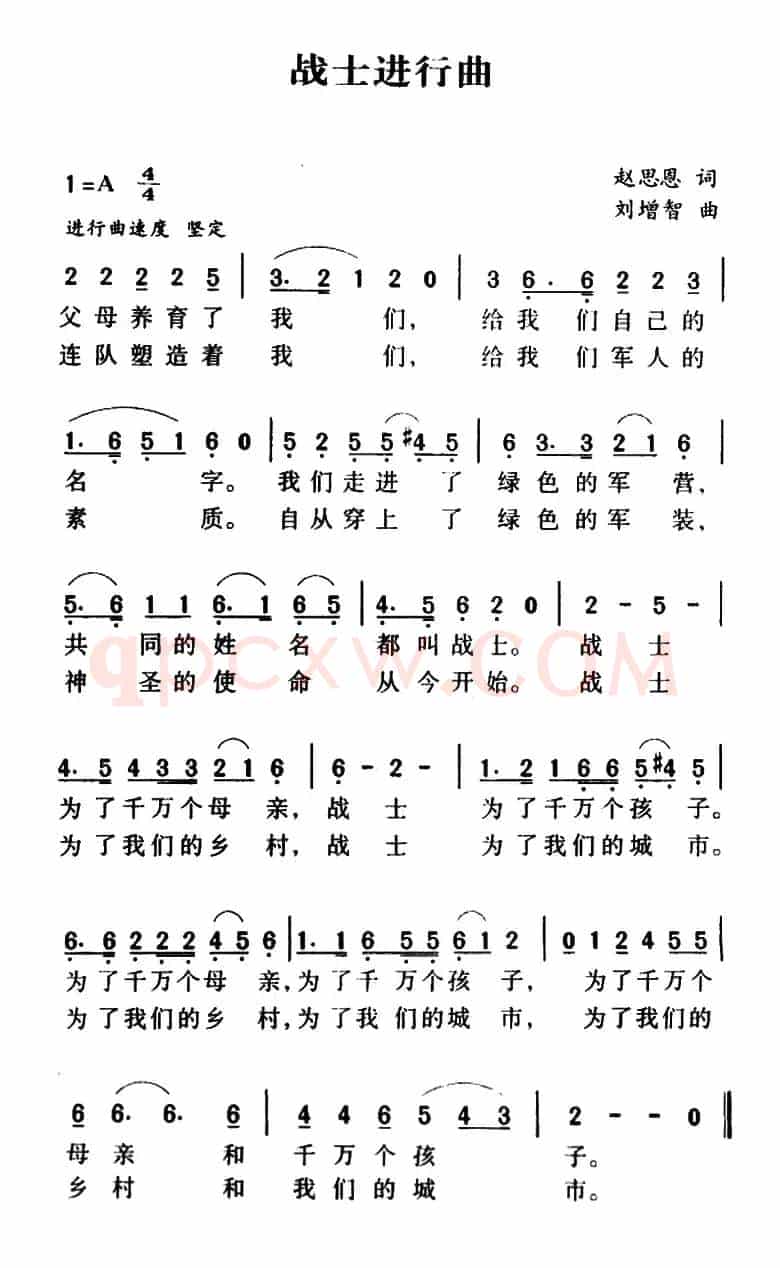 战士进行曲
1=A 4/4
赵思恩 词
刘增智 曲
进行曲速度 坚定
2 2 2 2 2 5 | 3. 2 1 2 0 | 3 6. 6 2 2 3 |
父母养育了 我 们, 给我 们自己的
连队塑造着 我 们, 给我 们军人的
1. 6 5 1 6 0 | 5 2 5 5 #4 5 | 6 3. 3 2 1 6 |
名 字。 我们走进 了 绿色的军 营,
素 质。 自从穿上 了 绿色的军 装,
5. 6 1 1 6. 1 6 5 | 4. 5 6 2 0 | 2 - 5 - |
共 同的姓 名 都叫战士。 战 士
神 圣的使 命 从今开始。 战 士
qpcxw.COM
4. 5 4 3 3 2 1 6 | 6 - 2 - | 1. 2 1 6 6 5 #4 5 |
为了千万个母 亲, 战 士 为了千万个孩 子。
为了我们的乡 村, 战 士 为了我们的城 市。
6. 6 2 2 2 4 5 6 | 1. 1 6 5 5 6 1 2 | 0 1 2 4 5 5 |
为了千万个母 亲, 为了千 万个孩 子, 为了千万个
为了我们的乡 村, 为了我 们的城 市, 为了我们的
6 6. 6. 6 | 4 4 6 5 4 3 | 2 - - 0 ‖
母 亲 和 千万个孩 子。
乡 村 和 我们的城 市。